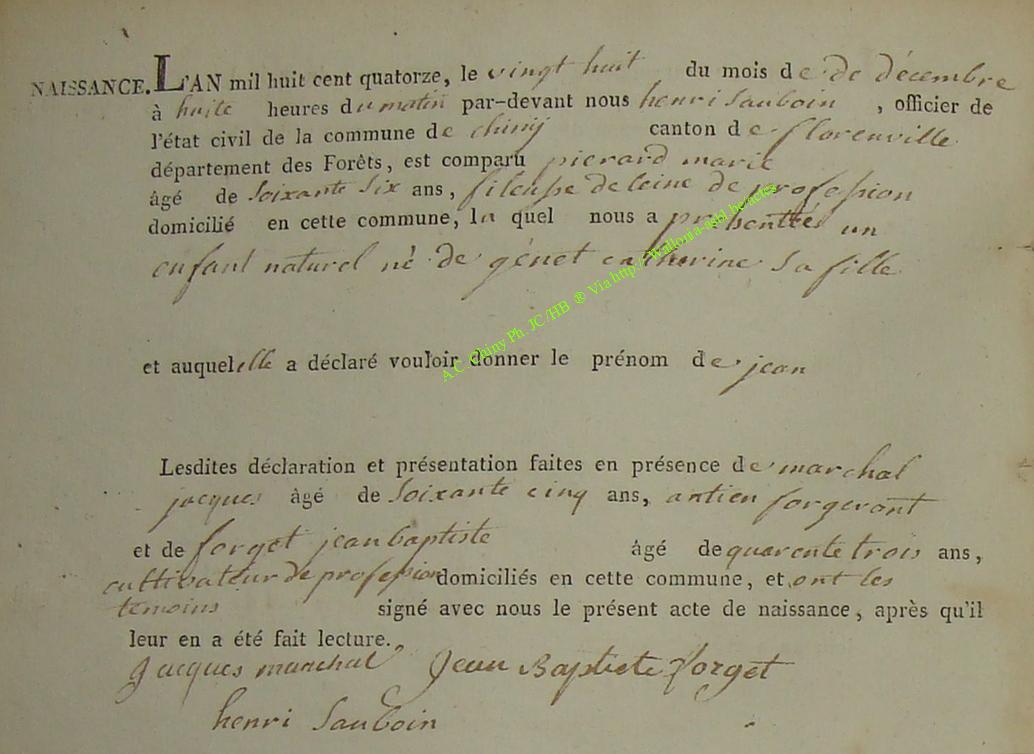 NAISSANCE. L'AN mil huit cent quatorze, le vingt huit du mois de de décembre
à huite heures du matin par-devant nous henri Sauboin , officier de
l'état civil de la commune de chinij canton de florenville
département des Forêts, est comparu pierard marie
âgé de soixante six ans, fileusse de leine de profession
domicilié en cette commune, la quel nous a présenttés un
enfant naturel né de génet catherine sa fille
et auquel elle a déclaré vouloir donner le prénom de jean
Lesdites déclaration et présentation faites en présence de marchal
jacques âgé de soixante cinq ans, antien forgeront
et de forget jean baptiste âgé de quarente trois ans,
cultivateur de profession domiciliés en cette commune, et ont les
temoins signé avec nous le présent acte de naissance, après qu'il
leur en a été fait lecture.
jacques marchal Jean Baptiste forget
henri Sauboin
A.C. Chiny Ph. JC/HB ® Via http://Wallonia-asbl.be/actes